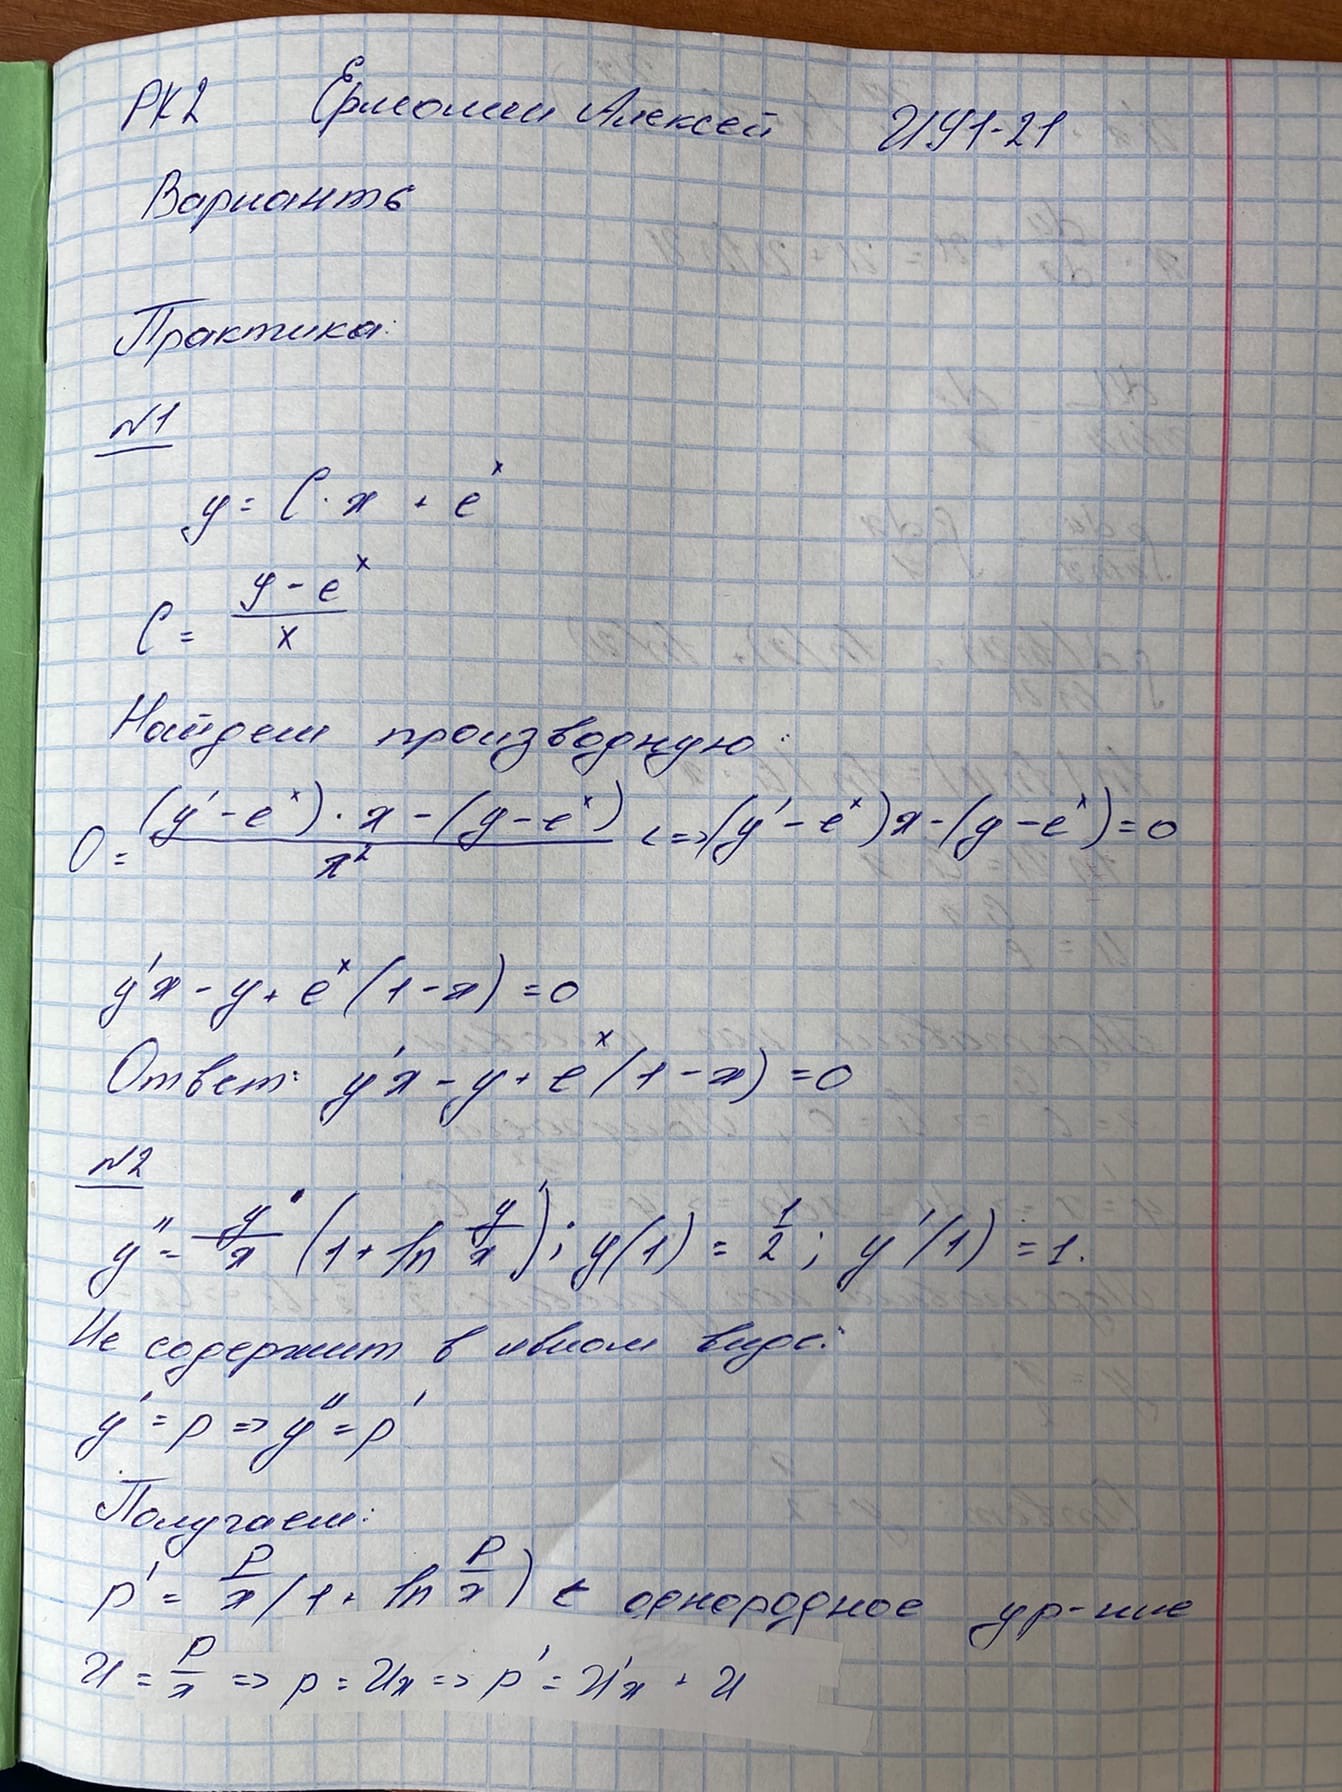 РК2 Ермолин Алексей ИУ1-21
Вариант6
Практика:
№1
y = C·x + e^x
C = (y - e^x)/x
Найдем производную:
0 = ((y' - e^x)·x - (y - e^x))/x² <=> (y' - e^x)x - (y - e^x) = 0
y'x - y + e^x(1 - x) = 0
Ответ: y'x - y + e^x(1 - x) = 0
№2
y'' = y'/x (1 + ln y'/x); y(1) = 1/2; y'(1) = 1.
Не содержит в явном виде:
y' = p => y'' = p'
Получаем:
p' = p/x (1 + ln p/x) ← однородное ур-ние
u = p/x => p = ux => p' = u'x + u